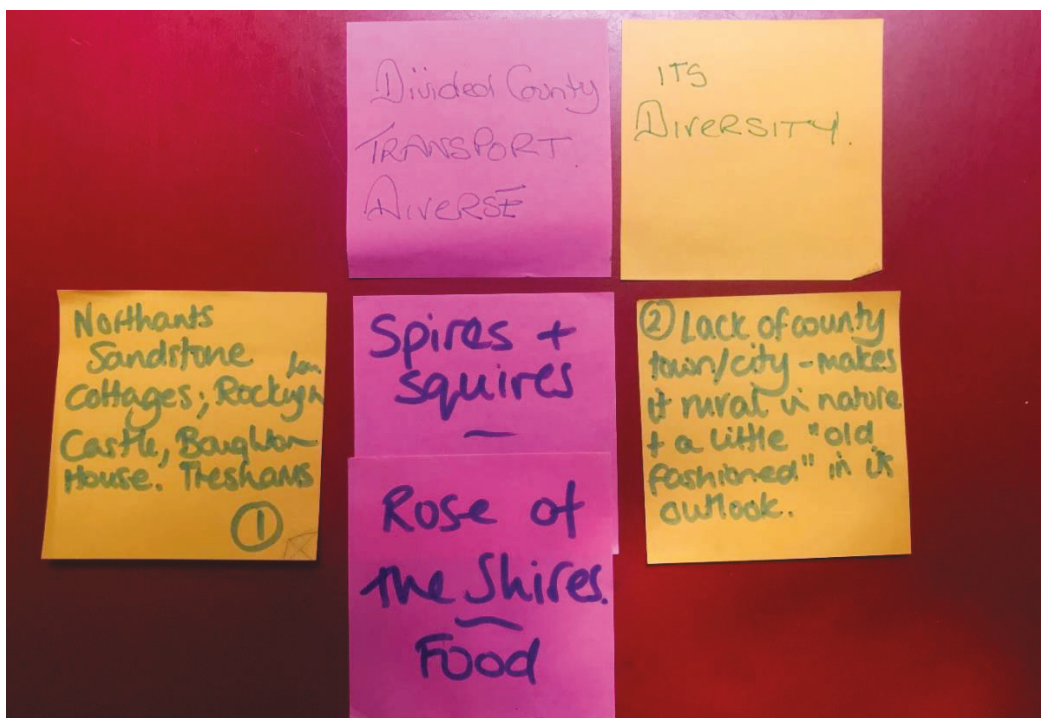 Divided County
TRANSPORT.
DIVERSE
ITS
DIVERSITY.
Northants
Sandstone
Cottages; Rockingham
Castle, Boughton
House. Treshams
①
Spires +
squires
Rose of
the Shires.
Food
② Lack of county
town/city - makes
it rural in nature
+ a little "old
fashioned" in its
outlook.